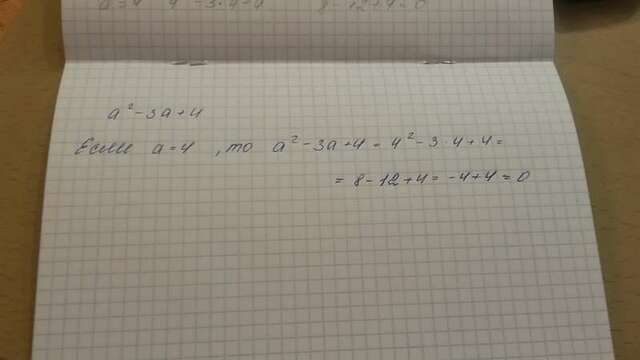 a² - 3a + 4
Если a = 4, то a² - 3a + 4 = 4² - 3 · 4 + 4 =
= 8 - 12 + 4 = -4 + 4 = 0